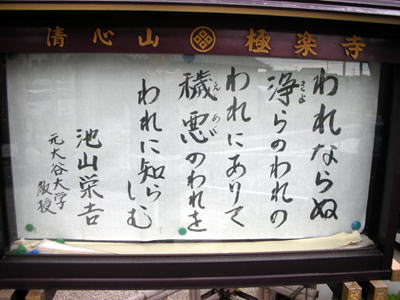 清心山 極楽寺
われならぬ
浄らのわれの
われにありて
穢悪のわれを
われに知らしむ
池山栄吉
元大谷大学
教授